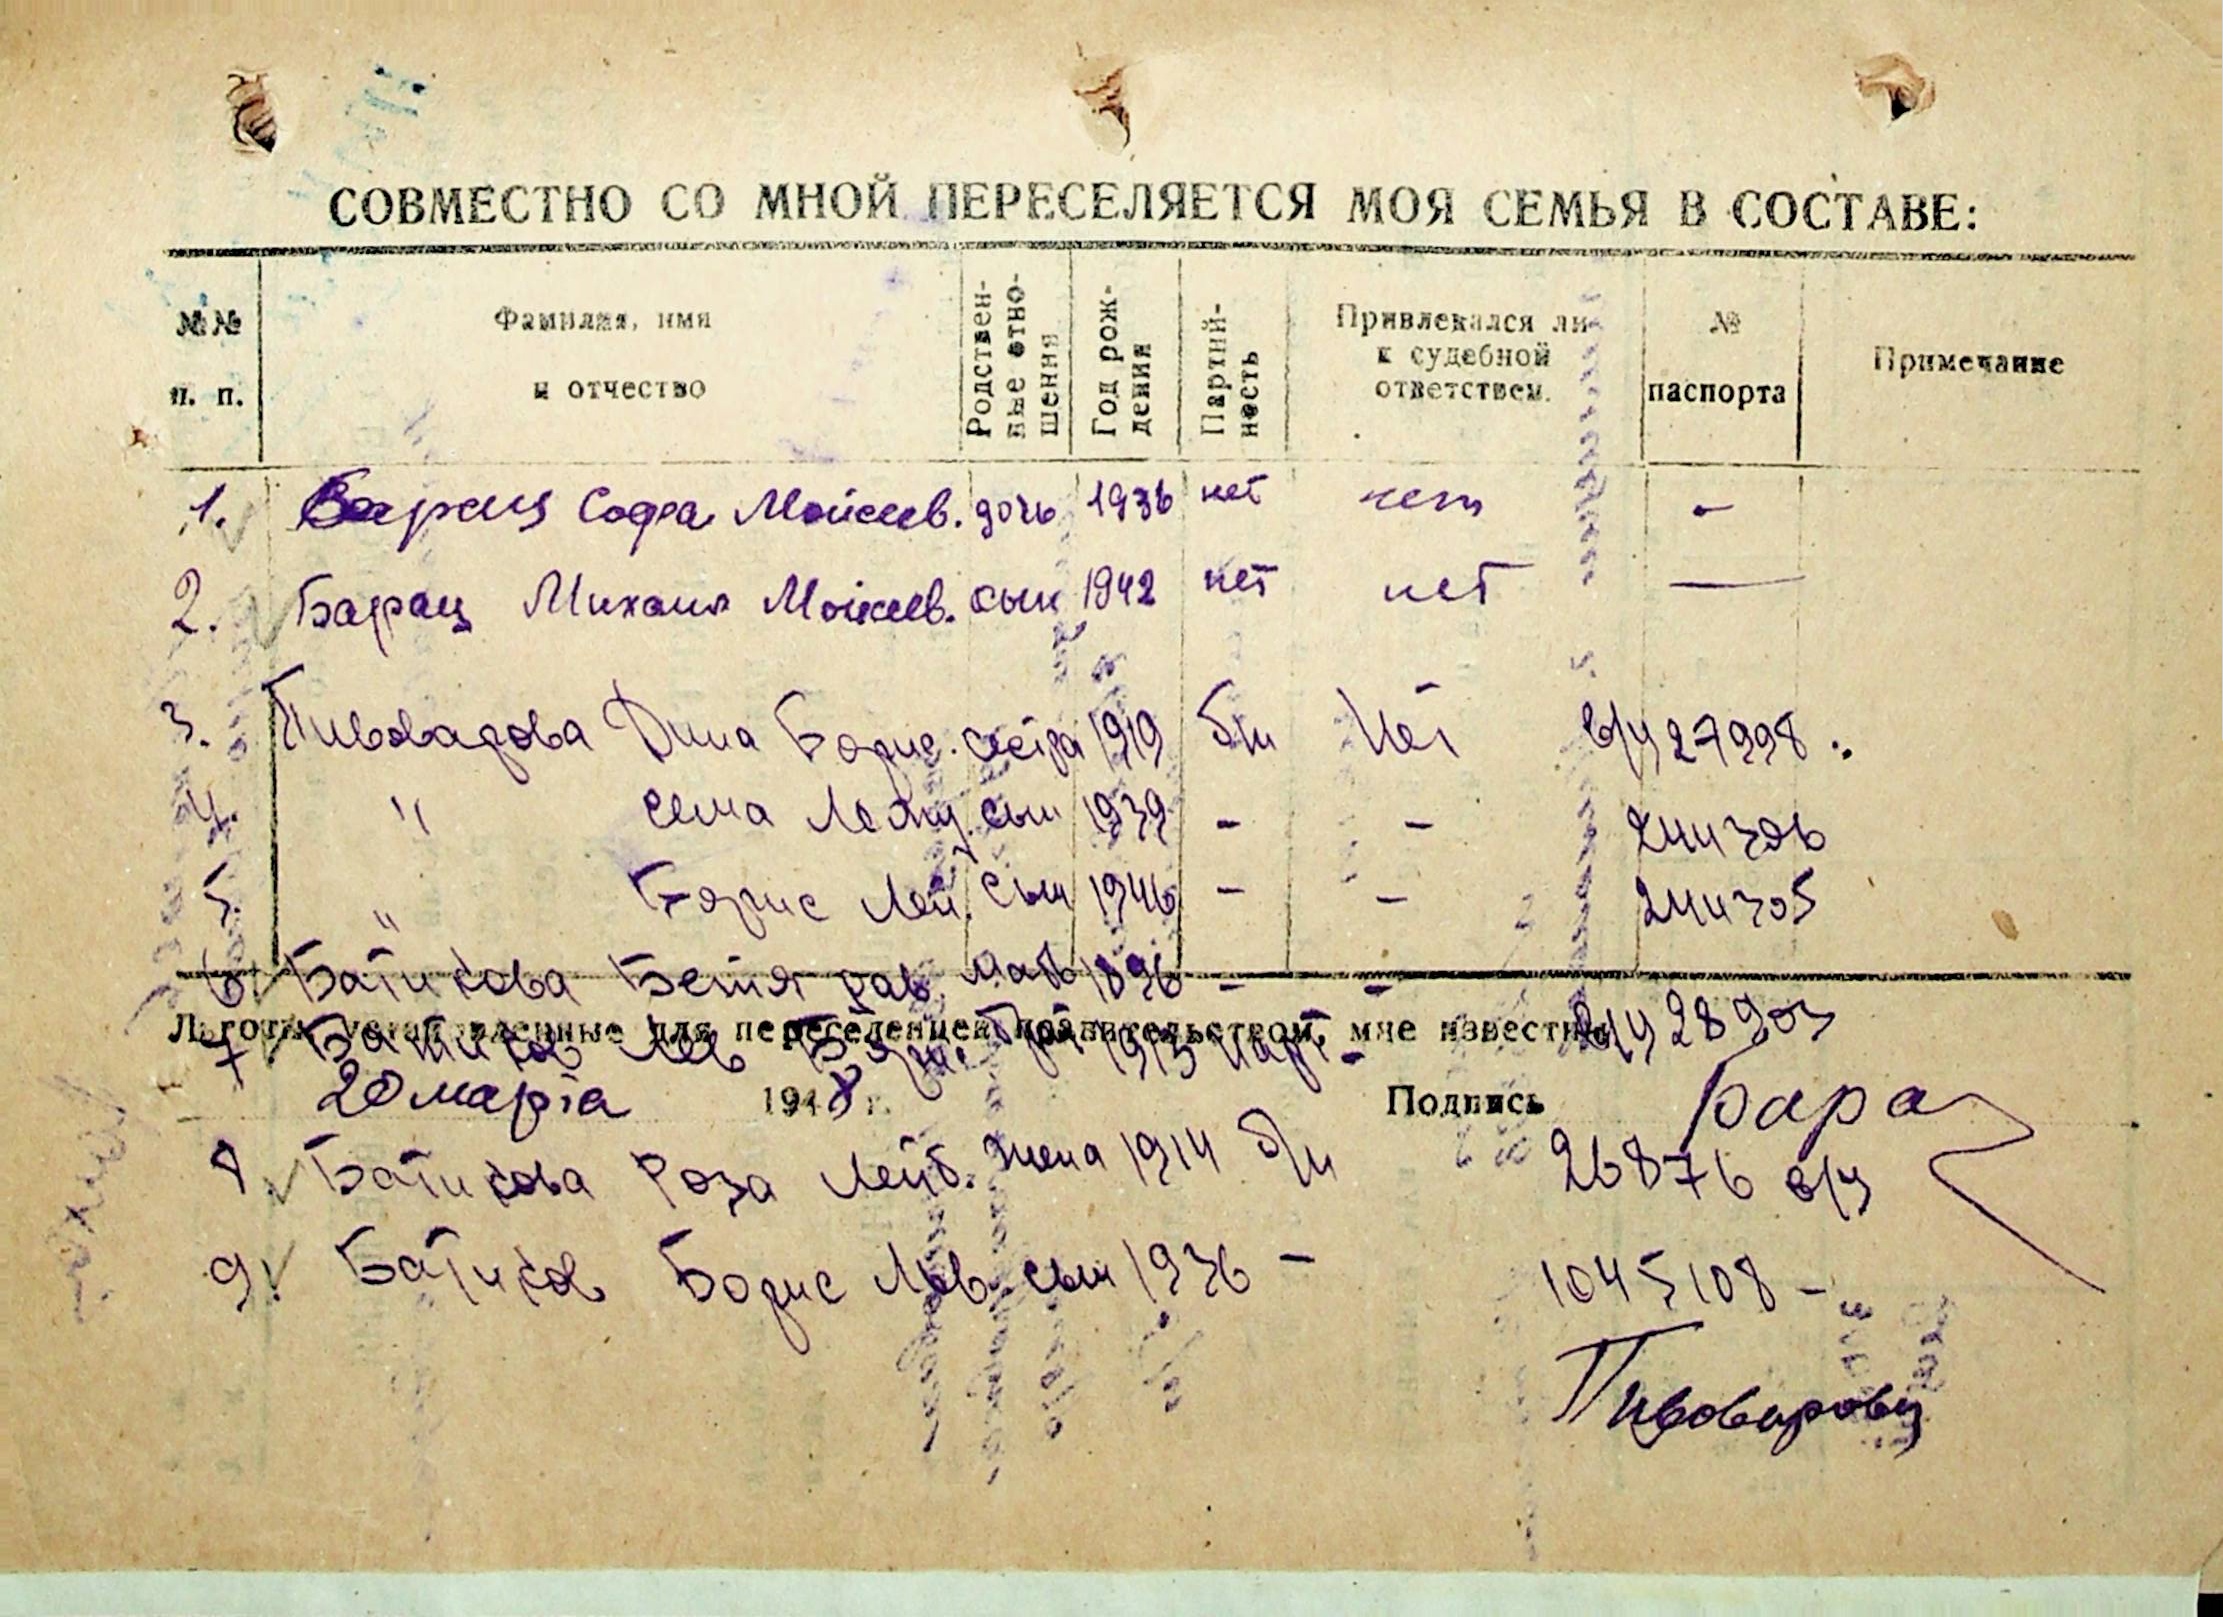 СОВМЕСТНО СО МНОЙ ПЕРЕСЕЛЯЕТСЯ МОЯ СЕМЬЯ В СОСТАВЕ:
№№ п. п. Фамилия, имя и отчество Родственные отношения Год рождения Партийность Привлекался ли к судебной ответствен. № паспорта Примечание
1. Барац Софа Моисеев. дочь 1936 нет нет -
2. Барац Михаил Моисеев. сын 1942 нет нет —
3. Пивоварова Дина Борис. сестра 1919 б/п Нет в/у 27998
4. " Сема сын 1939 - - 2444306
5. " Борис Лей. сын 1946 - - 2444305
6. Батикова Бетя мать 1896 - -
Льготы, установленные для переселенцев правительством, мне известны
7 Батиков Лев 1913 парт - в/у 28903
20 марта 1948 г. Подпись Барац
8. Батикова Роза Лейб. жена 1914 б/п 26876 в/у
9. Батиков Борис Льв. сын 1936 - 1045108 -
Пивоварова